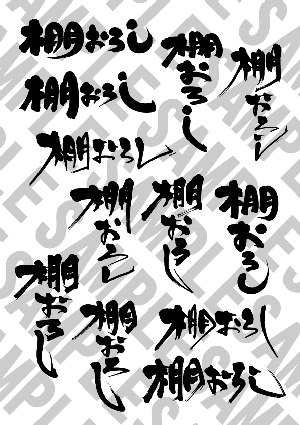 棚おろし
棚おろし
棚おろし
棚おろし
棚おろし
棚おろし
棚おろし
棚おろし
棚おろし
棚おろし
棚おろし
棚おろし
SAMPLE